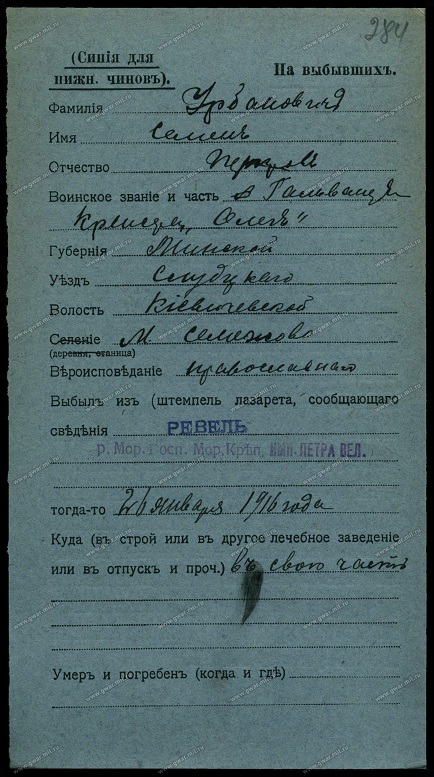 284
(Синія для
нижн. чиновъ).
На выбывшихъ.
Фамилія Урбановичъ
Имя Семенъ
Отчество
Воинское званіе и часть
Крейсер „Олегъ"
Губернія Минской
Уѣздъ Слуцкаго
Волость Кіевичевской
Селеніе М Семежово
(деревня, станица)
Вѣроисповѣданіе православнаго
Выбылъ изъ (штемпель лазарета, сообщающаго
свѣдѣнія РЕВЕЛЬ
р. Мор. Госп. Мор. Крѣп. ИМП. ПЕТРА ВЕЛ.
тогда-то 26 января 1916 года
Куда (въ строй или въ другое лечебное заведеніе
или въ отпускъ и проч.) въ свою часть
Умеръ и погребенъ (когда и гдѣ)
www.gwar.mil.ru